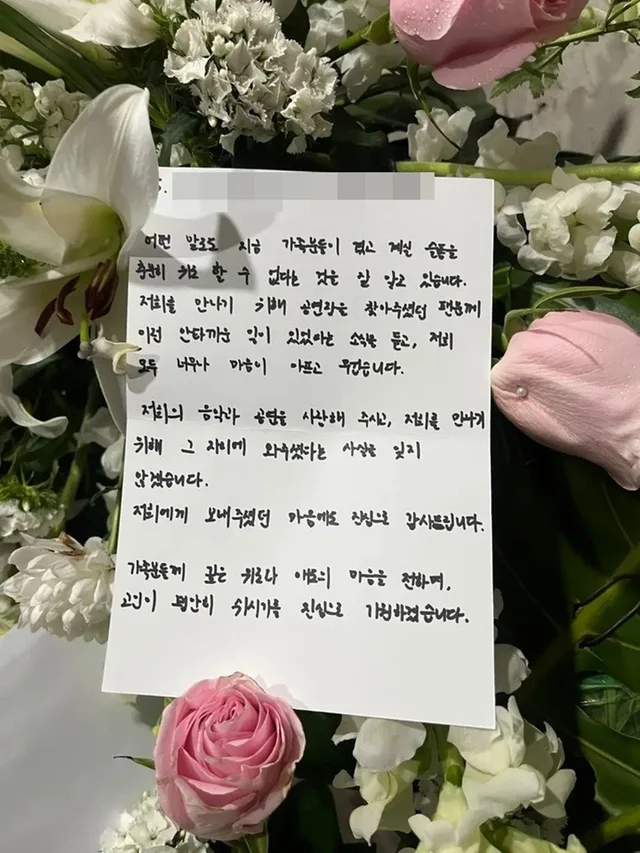 어떤 말로도 지금 가족분들이 겪고 계실 슬픔을
충분히 위로 할 수 없다는 것을 잘 알고 있습니다.
저희를 만나기 위해 공연장을 찾아주셨던 팬분께
이런 안타까운 일이 있었다는 소식을 듣고, 저희
모두 너무나 마음이 아프고 무겁습니다.
저희의 음악과 공연을 사랑해 주시고, 저희를 만나기
위해 그 자리에 와주셨다는 사실을 잊지
않겠습니다.
저희에게 보내주셨던 마음에도 진심으로 감사드립니다.
가족분들께 깊은 위로와 애도의 마음을 전하며,
고인이 평안히 쉬시기를 진심으로 기원하겠습니다.